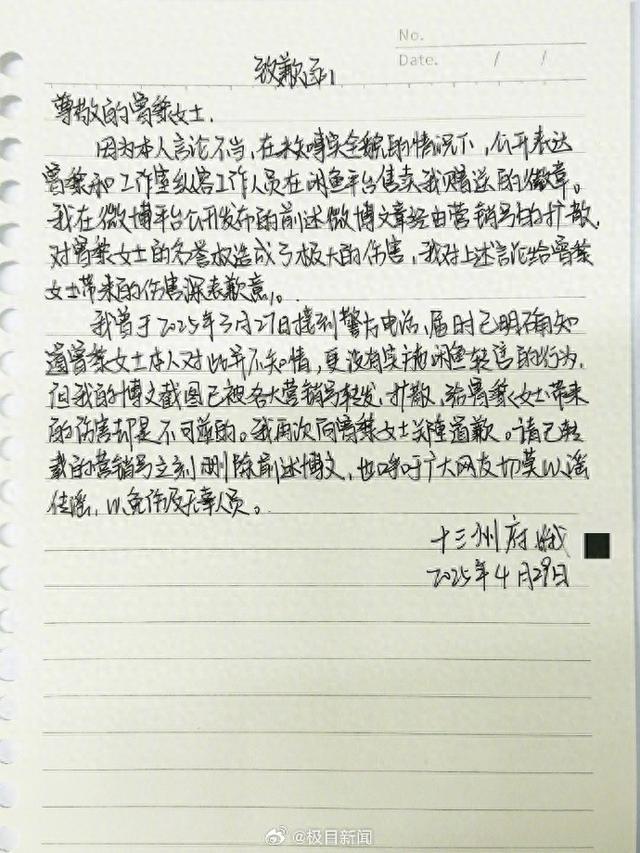 No.
Date. / /
致歉函
尊敬的曾黎女士.
因为本人言论不当,在未核实全貌的情况下,公开表达
曾黎和工作室纵容工作人员在闲鱼平台售卖我赠送的徽章。
我在微博平台公开发布的前述微博文章经由营销号的扩散,
对曾黎女士的名誉权造成了极大的伤害,我对上述言论给曾黎
女士带来的伤害深表歉意。
我曾于2025年3月27日接到警方电话,届时已明确知
道曾黎女士本人对此并不知情,更没有实施闲鱼转售的行为,
但我的博文截图已被各大营销号转发,扩散,给曾黎女士带来
的伤害却是不可逆的。我再次向曾黎女士郑重道歉。请已转
载的营销号立刻删除前述博文,也呼吁广大网友切莫以谣
传谣,以免伤及无辜人员。
十三州府
2025年4月29日
@极目新闻